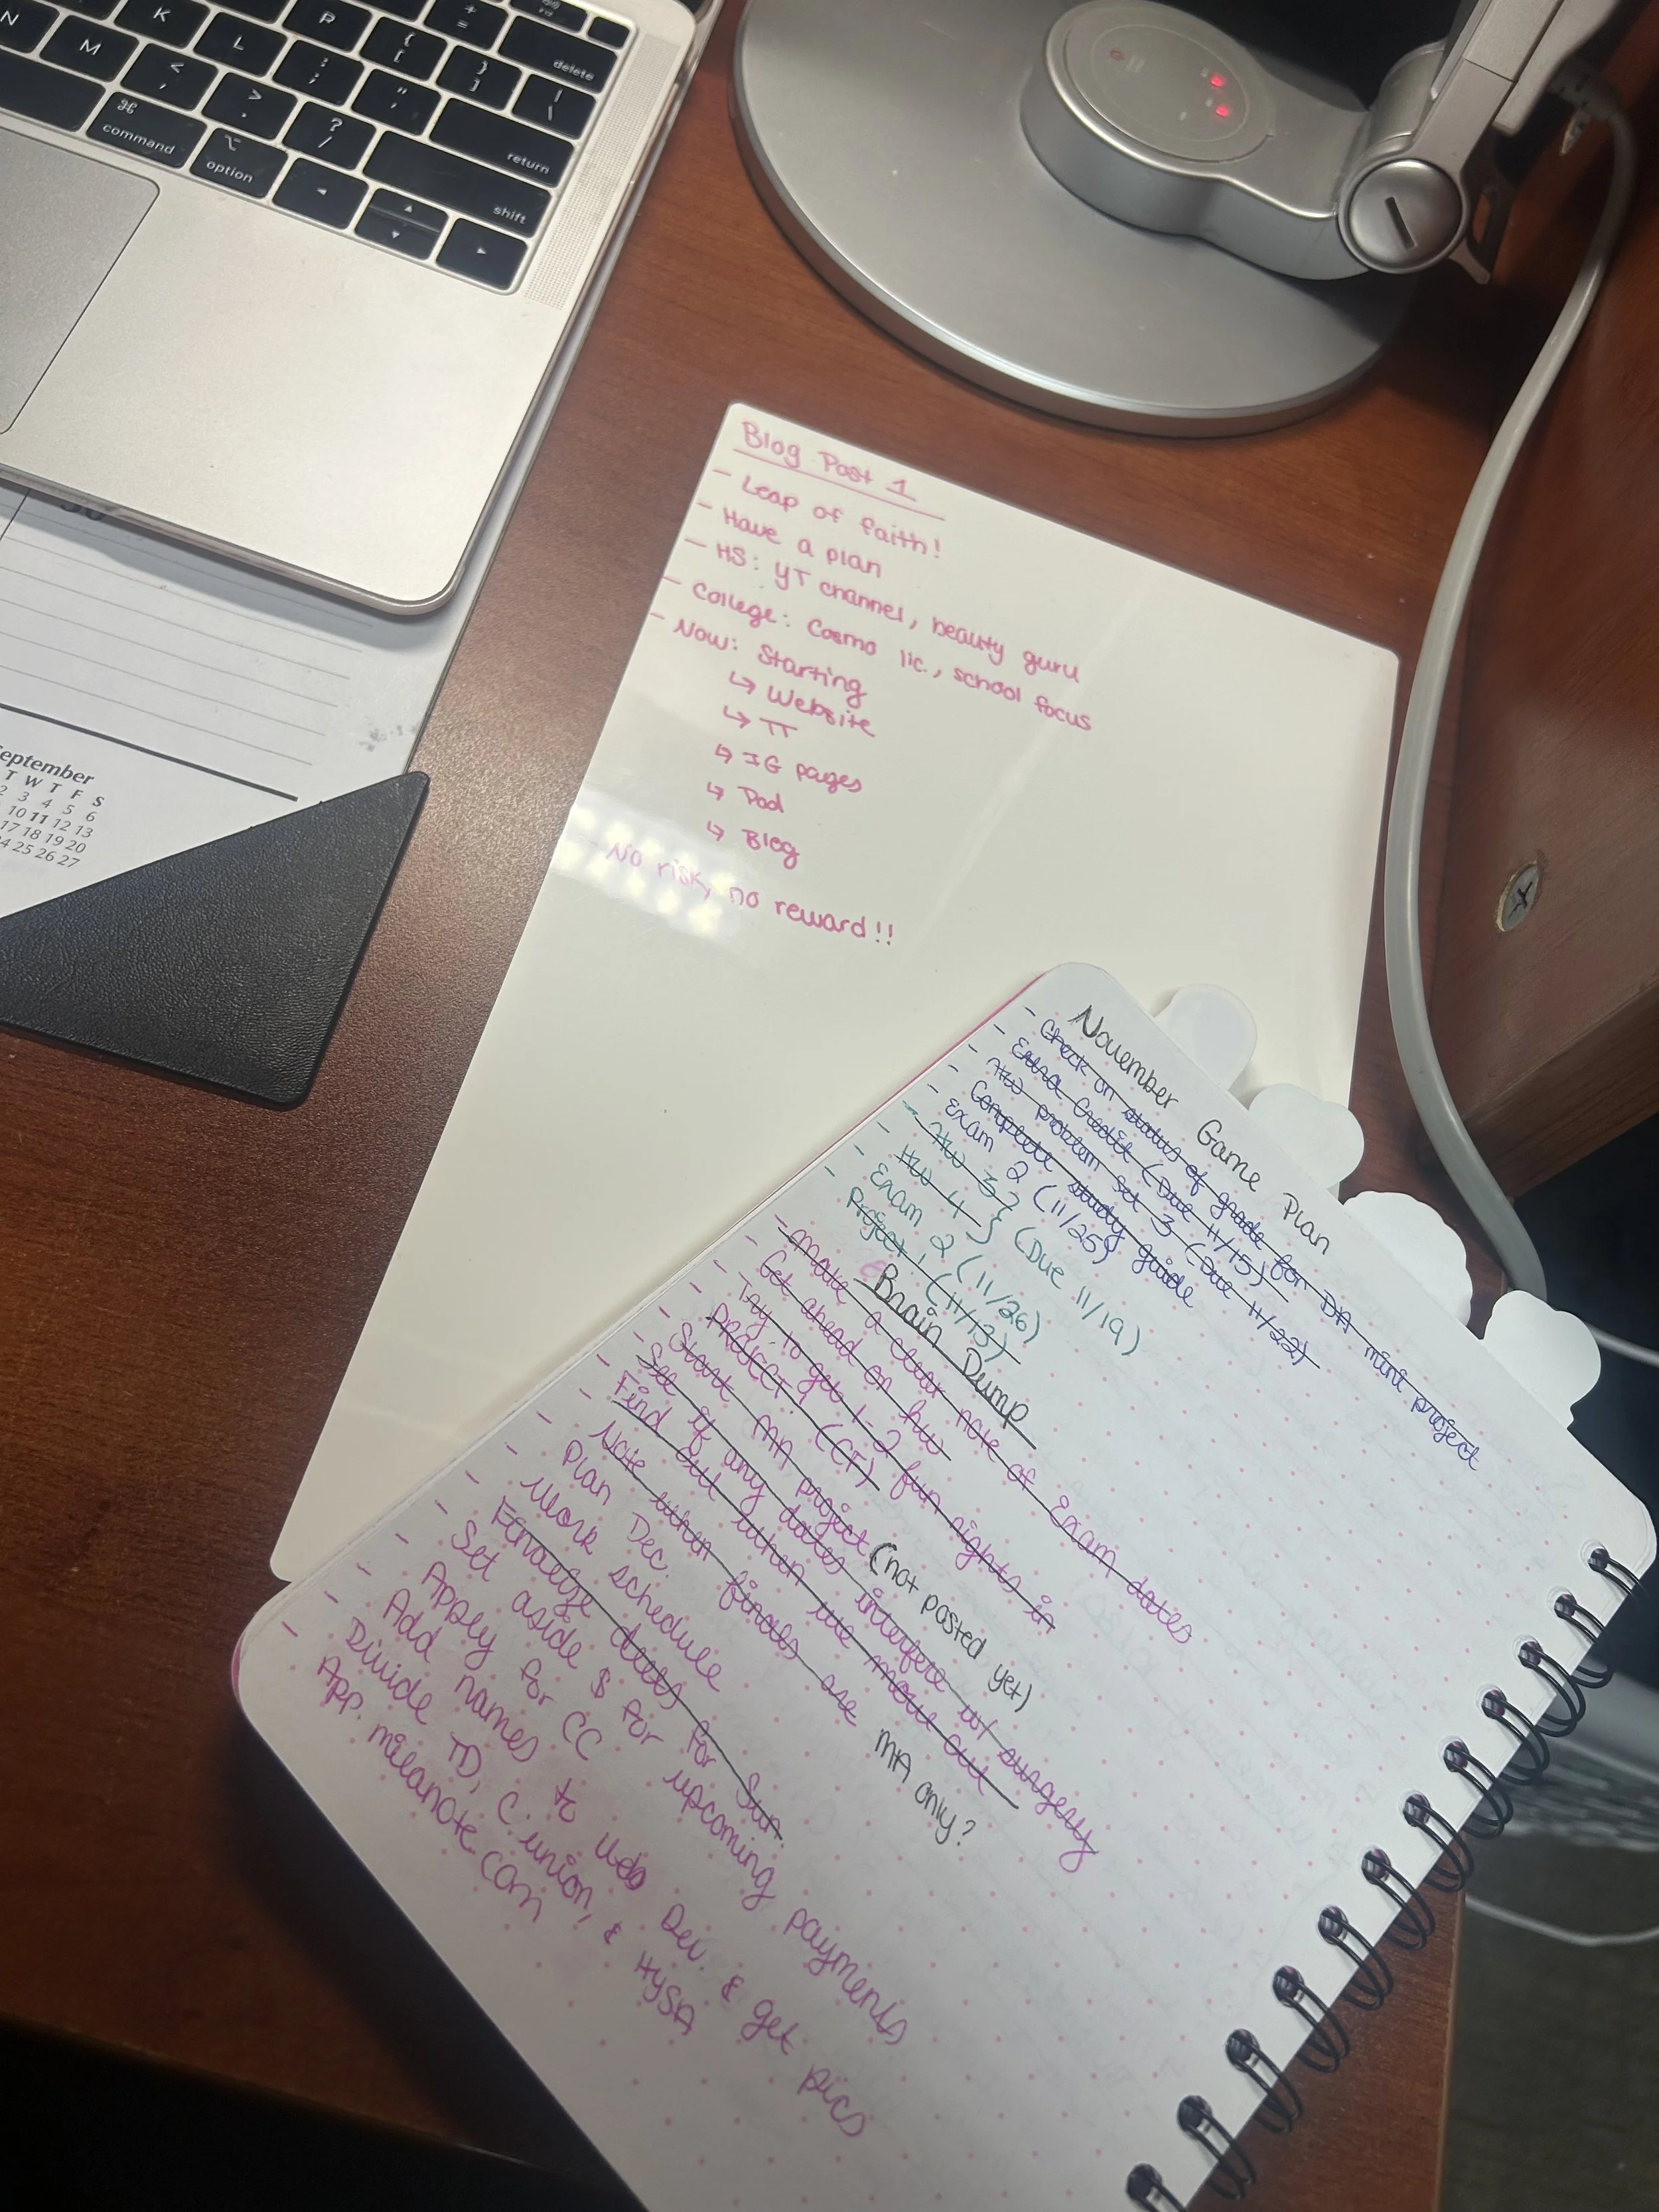 N
M
K
L
P
<
,
>
.
:
;
"
'
?
/
{
[
}
]
+
=
|
\
delete
return
shift
⌘
command
⌥
option
30
September
T W T F S
2 3 4 5 6
10 11 12 13
17 18 19 20
24 25 26 27
Blog Post 1
- Leap of faith!
- Have a plan
- HS: YT channel, beauty guru
- College: Cosmo lic., school focus
- Now: Starting
↳ Website
↳ TT
↳ IG pages
↳ Pod
↳ Blog
- No risk, no reward!!
November Game Plan
- Check on status of grade for DA mini project
- Extra Credit (Due 11/15)
- HW problem set 3 (Due 11/22)
- Complete study guide
- Exam 2 (11/25)
- HW 3 } (Due 11/19)
- HW 4
- Exam 2 (11/26)
- Project 1 (11/13)
Brain Dump
- Make a clear note of Exam dates
- Get ahead on hw
- Try to get 1-2 fun nights in
- PROJECT 1 (CT)
- Start MA project (not posted yet)
- See if any dates interfere w/ surgery
- Find out when we move out
- Note when finals are MA only?
- Plan Dec.
- Work schedule
- Finalize deets for Sun.
- Set aside $ for upcoming payments
- Apply for CC
- Add names to Web Dev. & get pics
- Divide TD, C. union, & HYSA
- App. milanote.com